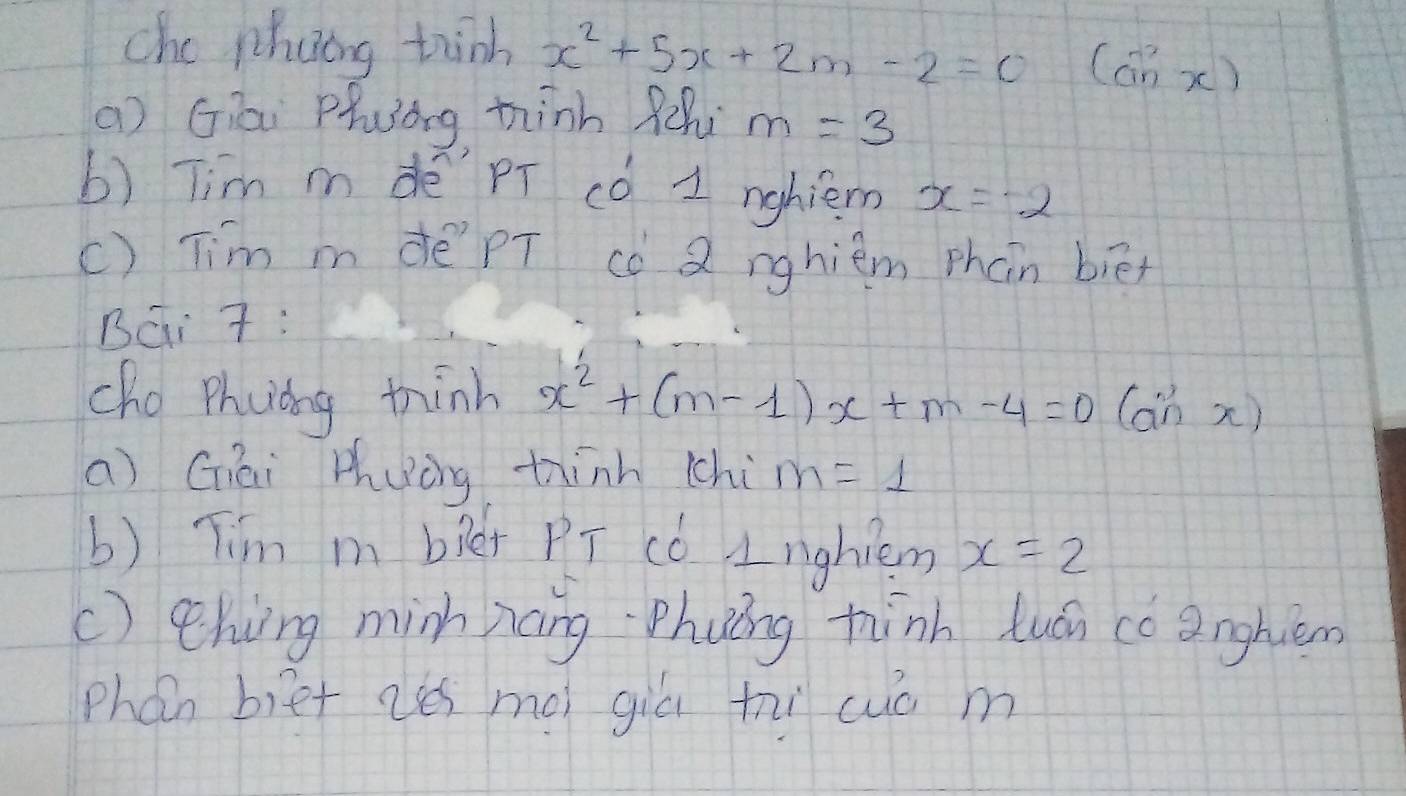 Cho phương trình x² + 5x + 2m - 2 = 0 (ẩn x)
a) Giải Phương trình khi m = 3
b) Tìm m để PT có 1 nghiệm x = -2
c) Tìm m để PT có 2 nghiệm phân biệt
Bài 7 :
Cho Phương trình x² + (m - 1)x + m - 4 = 0 (ẩn x)
a) Giải Phương trình khi m = 1
b) Tìm m biết PT có 1 nghiệm x = 2
c) Chứng minh rằng Phương trình luôn có 2 nghiệm
Phân biệt với mọi giá trị của m